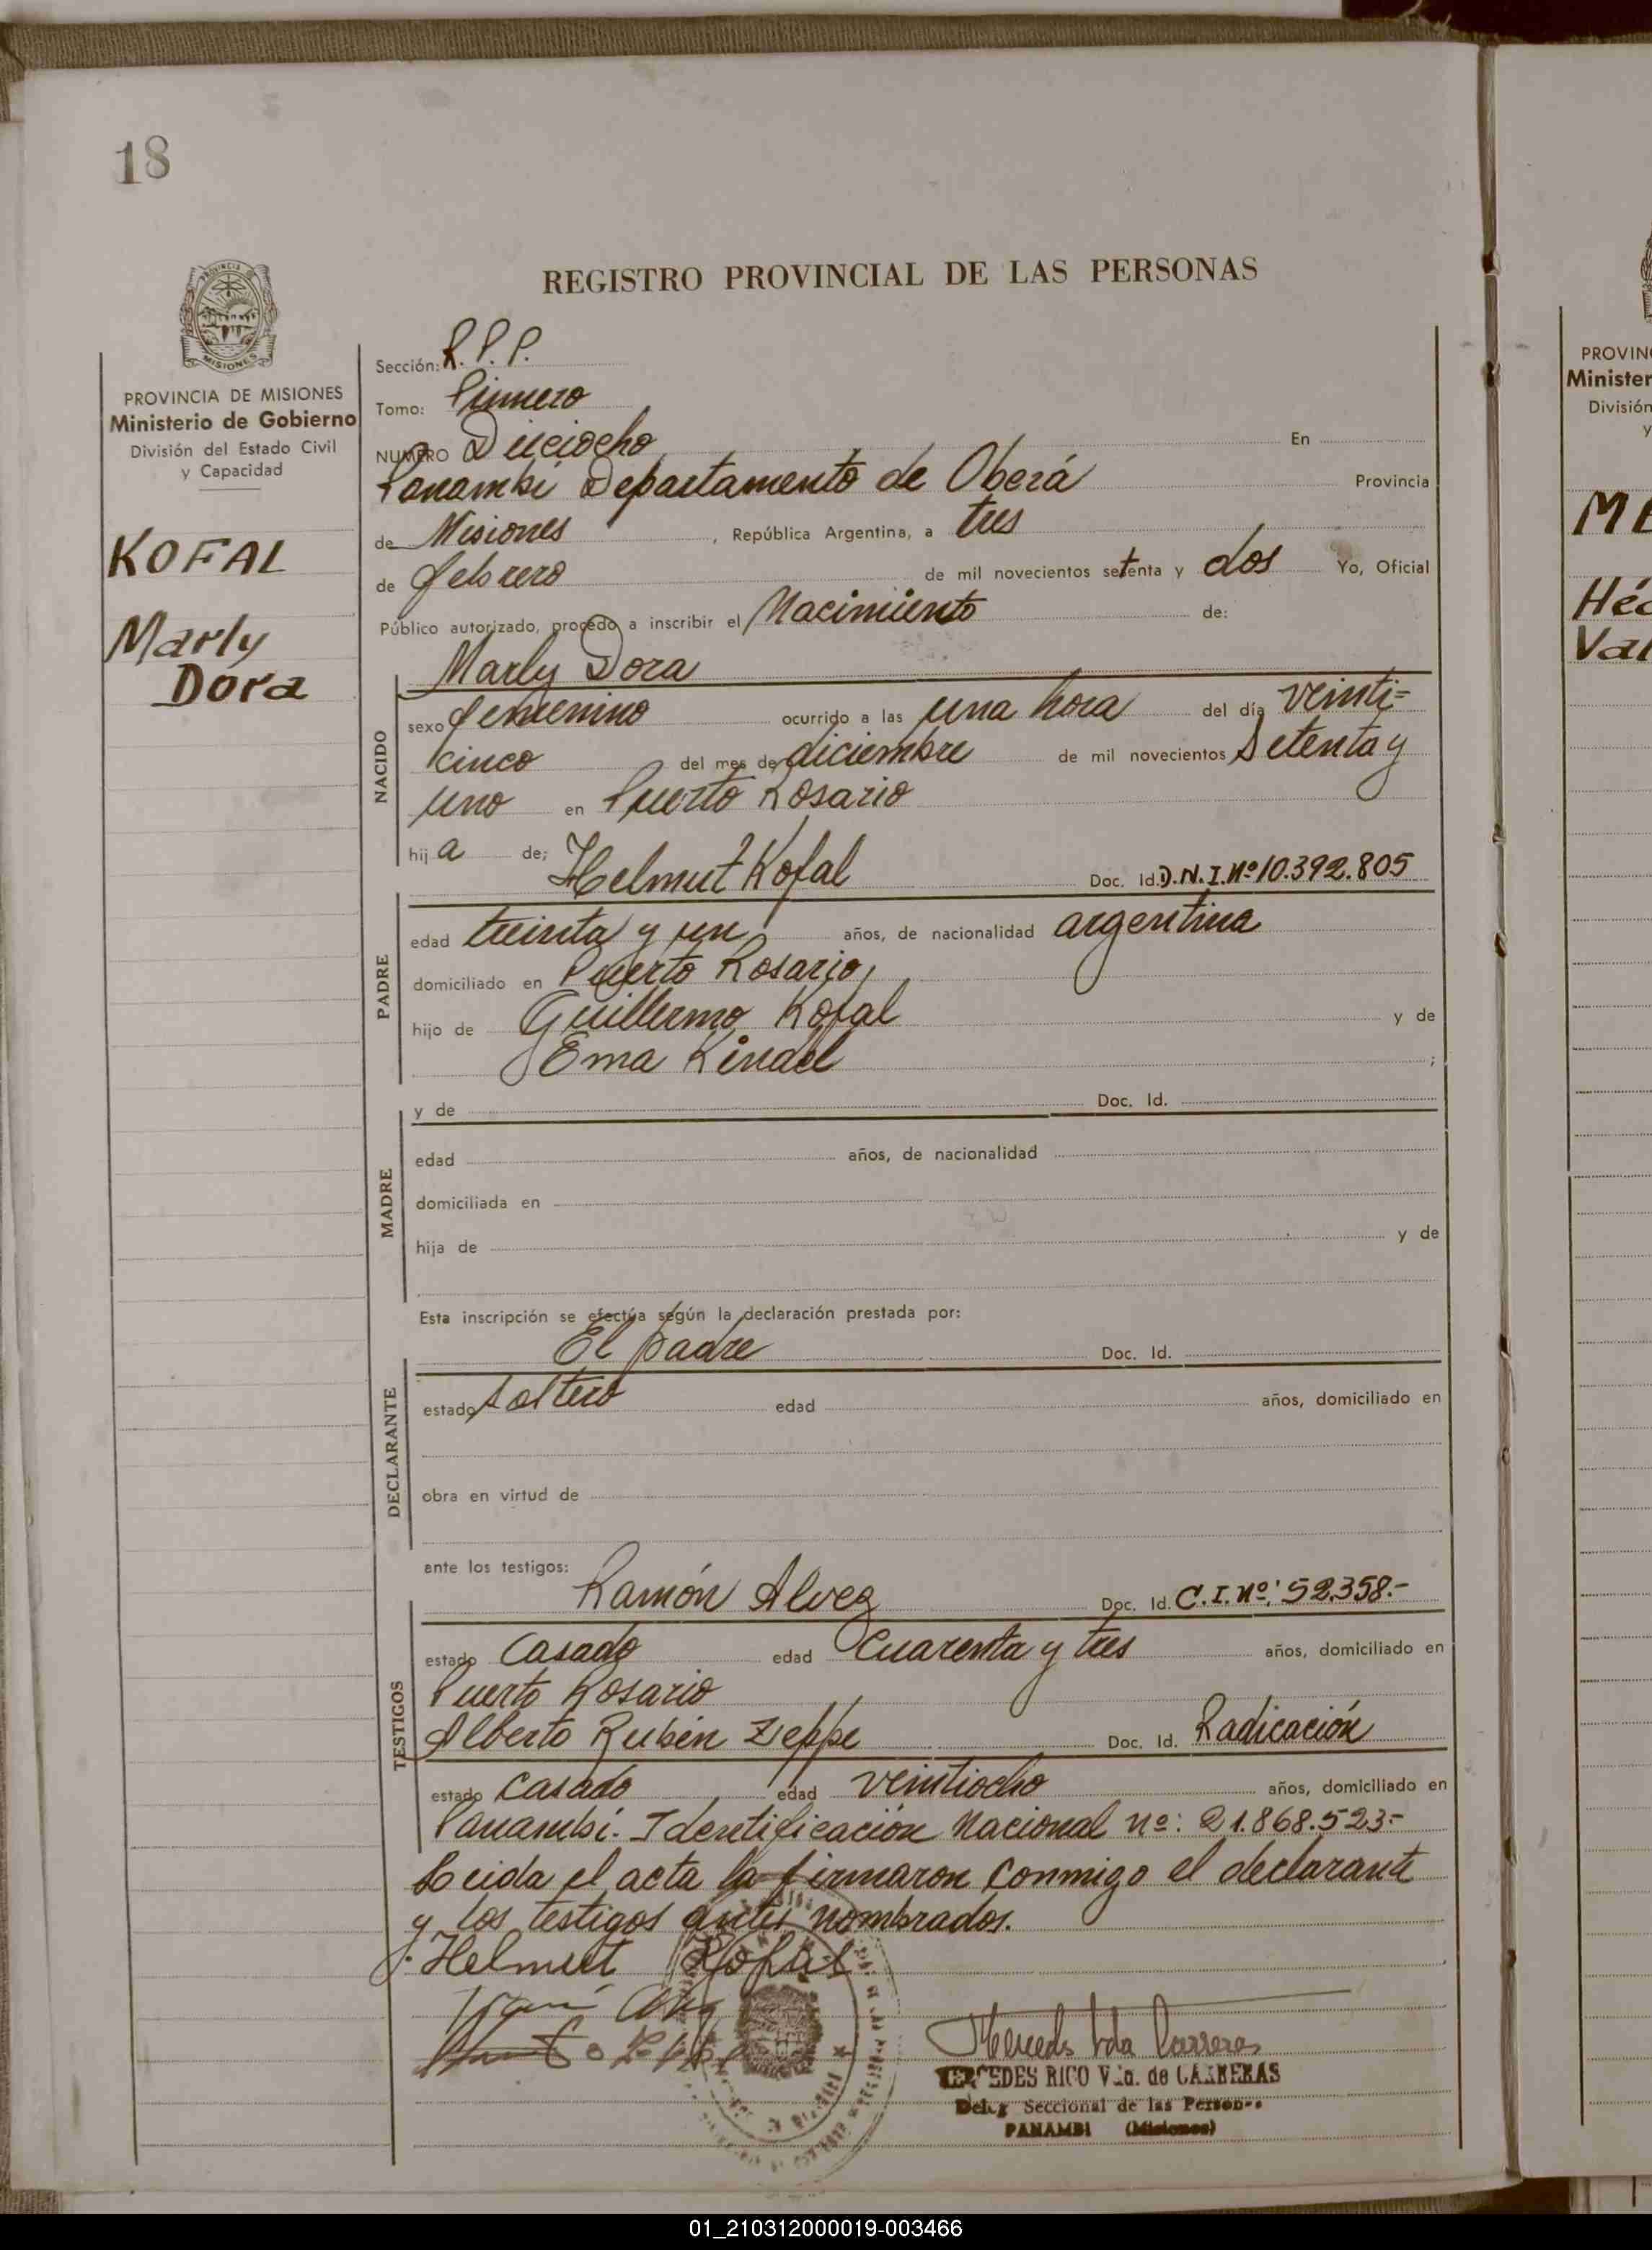 18
REGISTRO PROVINCIAL DE LAS PERSONAS
PROVINCIA DE
MISIONES
PROVINCIA DE MISIONES
Ministerio de Gobierno
División del Estado Civil
y Capacidad
KOFAL
Marly
Dora
Sección: R. P. P.
Tomo: Primero
NUMERO Dieciocho En
Panambí Departamento de Oberá Provincia
de Misiones , República Argentina, a tres
de febrero de mil novecientos setenta y dos Yo, Oficial
Público autorizado, procedo a inscribir el Nacimiento de:
Marly Dora
NACIDO
sexo femenino ocurrido a las una hora del día veinti=
cinco del mes de diciembre de mil novecientos Setenta y
uno en Puerto Rosario
hij a de; Helmut Kofal Doc. Id. D.N.I.Nº10.392.805
PADRE
edad treinta y un años, de nacionalidad argentina
domiciliado en Puerto Rosario,
hijo de Guillermo Kofal y de
Ema Kindel ;
MADRE
y de Doc. Id.
edad años, de nacionalidad
domiciliada en
hija de y de
Esta inscripción se efectúa según la declaración prestada por:
El padre Doc. Id.
DECLARANTE
estado soltero edad años, domiciliado en
obra en virtud de
ante los testigos:
Ramón Alvez Doc. Id. C.I.Nº: 52358.-
TESTIGOS
estado casado edad cuarenta y tres años, domiciliado en
Puerto Rosario
Alberto Rubén Zieppe Doc. Id. Radicación
estado casado edad veintiocho años, domiciliado en
Panambí. Identificación Nacional nº: 21.868.523.-
Leida el acta la firmaron conmigo el declarante
y los testigos antes nombrados.
Helmut Kofal
Mercedes Vda Carreras
MERCEDES RICO Vda. de CARRERAS
Deleg Seccional de las Personas
PANAMBI (Misiones)
PROVIN
Minister
División
y
ME
Héc
Val
01_210312000019-003466